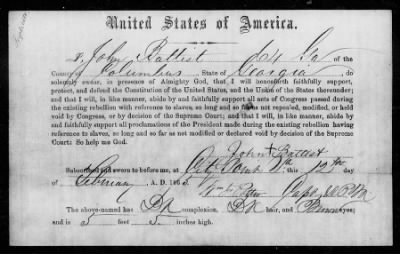 United States of America.
I, John Battist of the
County of Columbus State of Georgia, do
solemnly swear, in presence of Almighty God, that I will henceforth faithfully support,
protect, and defend the Constitution of the United States, and the Union of the States thereunder;
and that I will, in like manner, abide by and faithfully support all acts of Congress passed during
the existing rebellion with reference to slaves, so long and so far as not repealed, modified, or held
void by Congress, or by decision of the Supreme Court; and that I will, in like manner, abide by
and faithfully support all proclamations of the President made during the existing rebellion having
reference to slaves, so long and so far as not modified or declared void by decision of the Supreme
Court: So help me God.
John X Battist
Subscribed and sworn to before me, at City Point Va this day
of February A.D. 186
The above-named has Dk complexion, Dk hair, and eyes;
and is 5 feet 5 inches high.